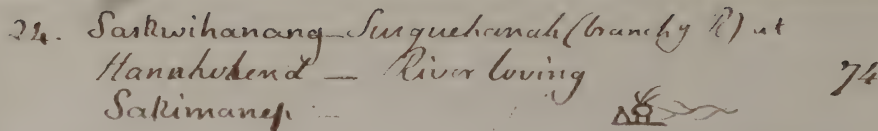 24. Saskwihanang - Susquehanah (branchy R) at
Hanaholend — River loving 74
Sakimanep